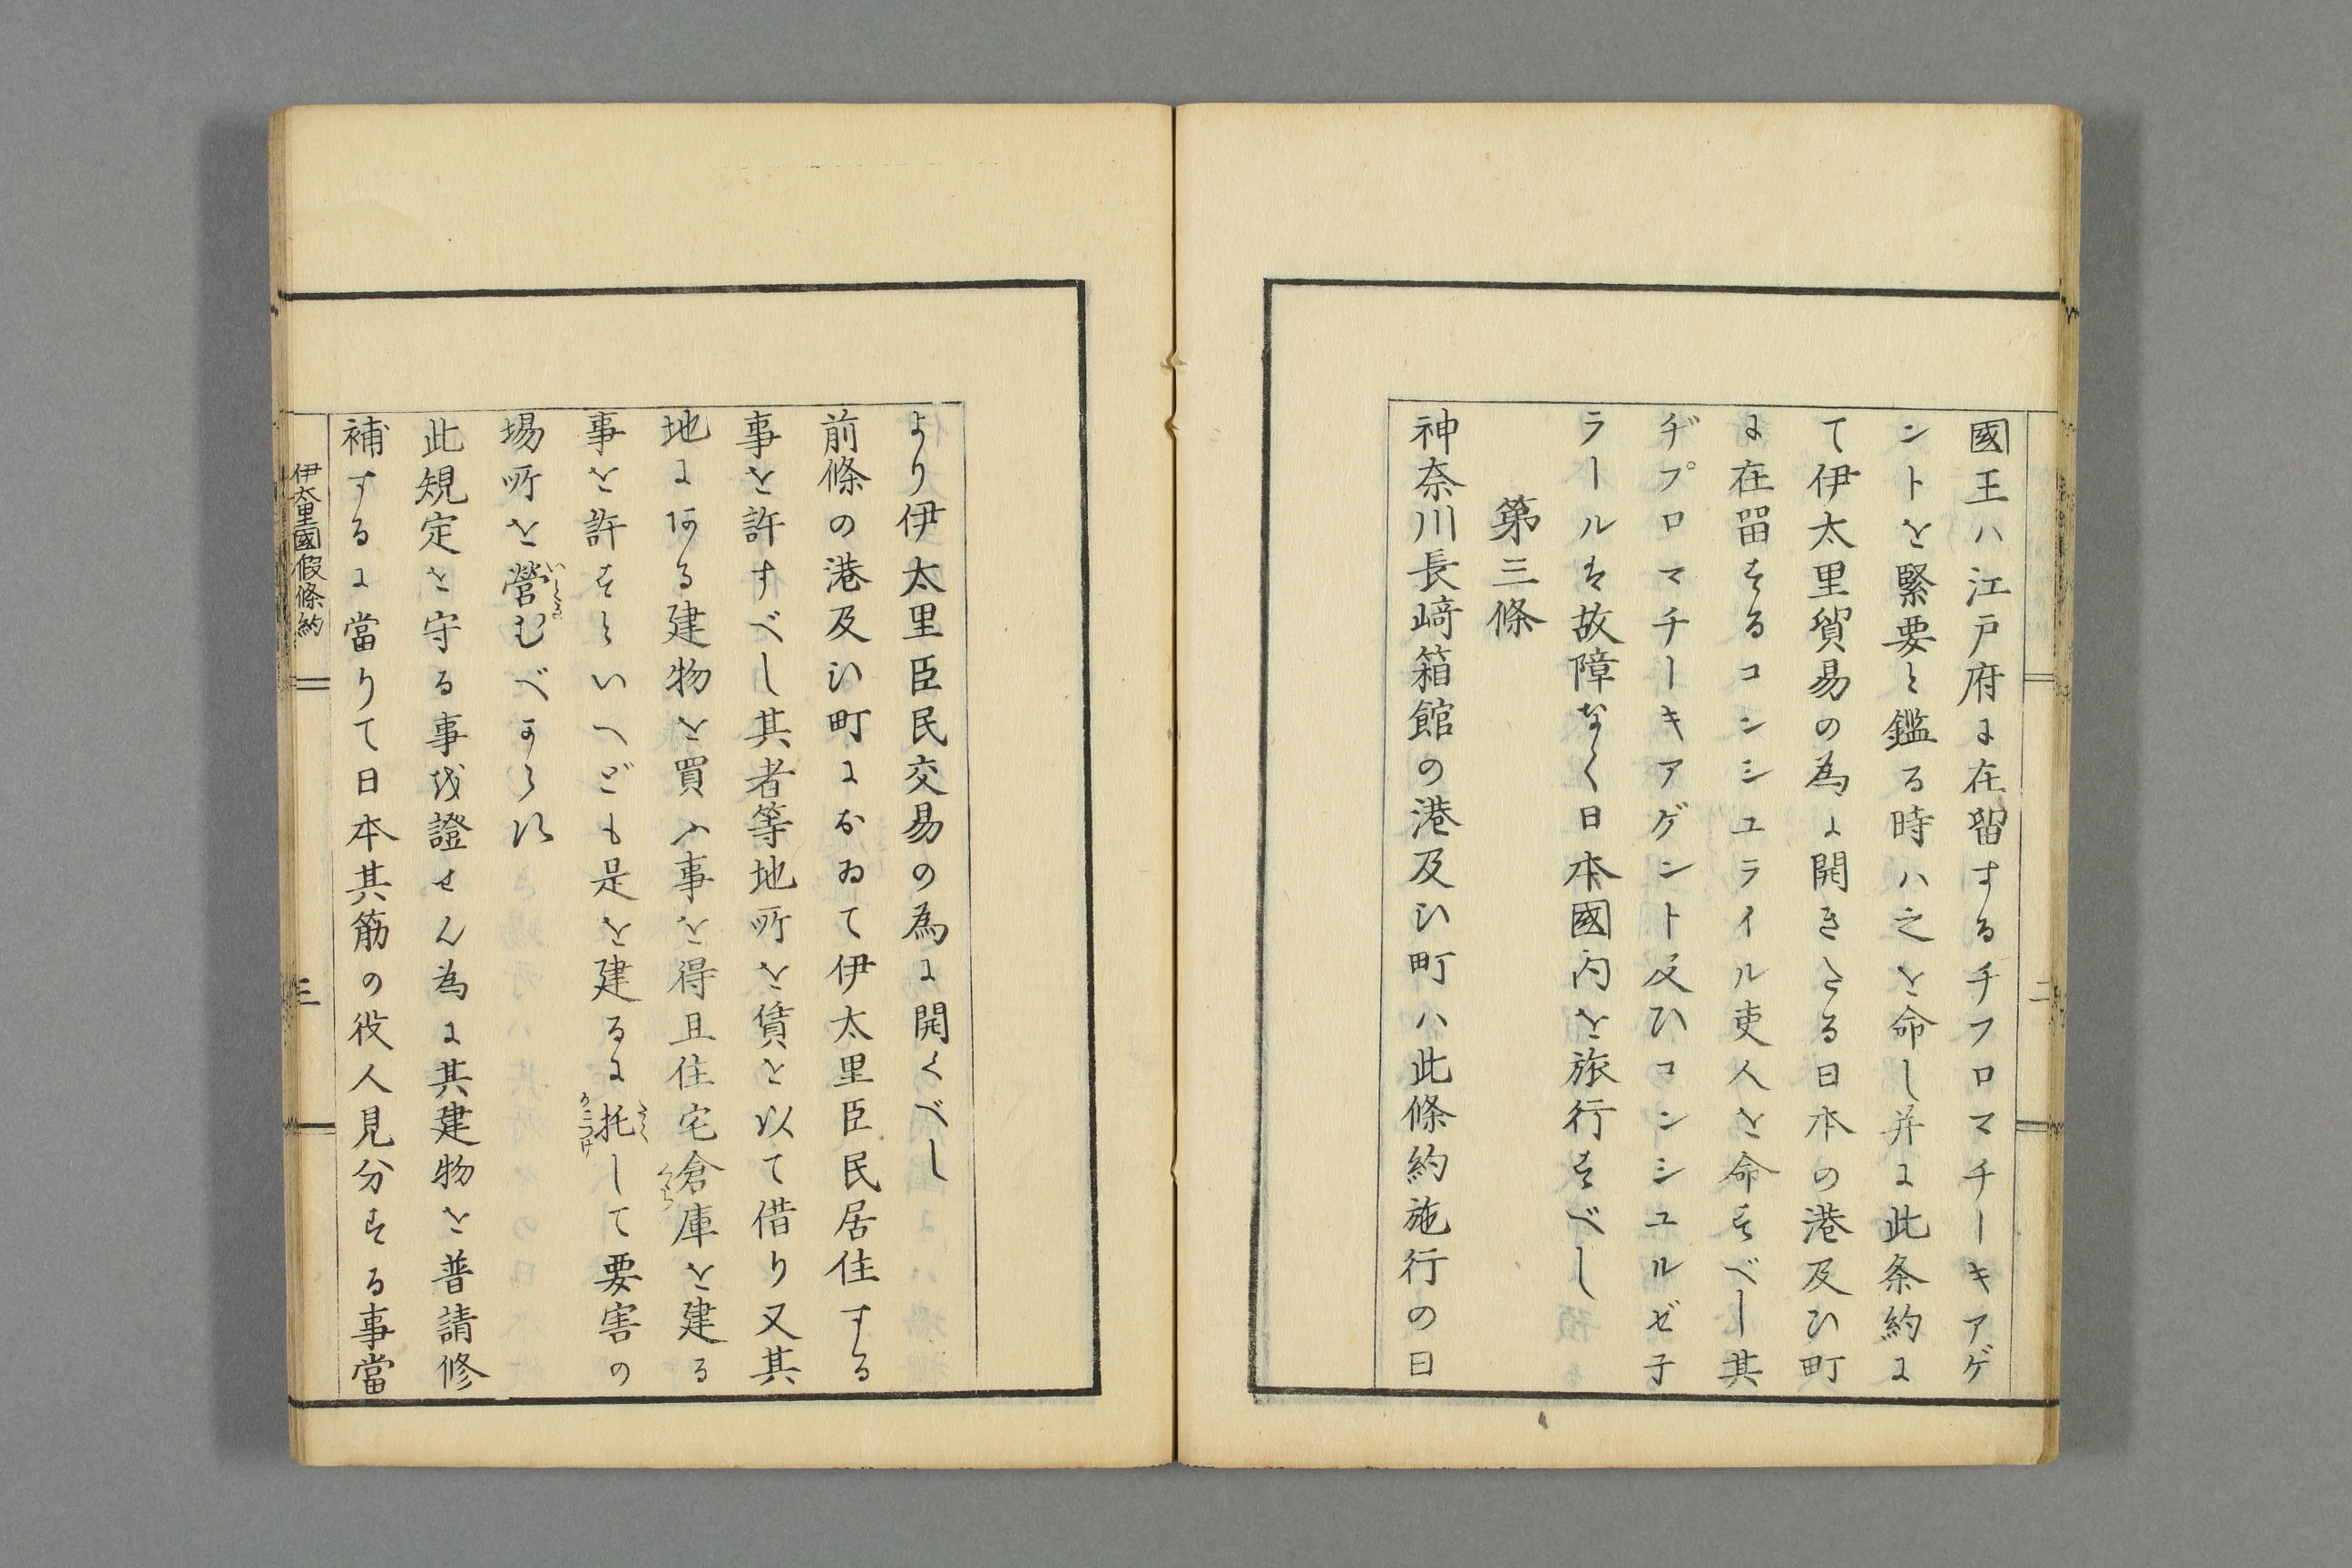 國王ハ江戸府に在留するチフロマチーキアゲ
ントを緊要と鑑る時ハ之を命し并に此条約に
て伊太里貿易の為に開きたる日本の港及ひ町
に在留するコンシユライル吏人を命すべし其
ヂプロマチーキアゲント及ひコンシユルゼ子
ラールは故障なく日本國内を旅行すべし
第三條
神奈川長﨑箱館の港及ひ町ハ此條約施行の日
二
より伊太里臣民交易の為に開くべし
前條の港及ひ町におゐて伊太里臣民居住する
事を許すべし其者等地所を賃を以て借り又其
地にある建物を買ふ事を得且住宅倉庫を建る
事を許すといへども是を建るに托して要害の
場所を營むべからす
此規定を守る事を證せん為に其建物を普請修
補するに當りて日本其筋の役人見分する事當
伊太里國假條約
三